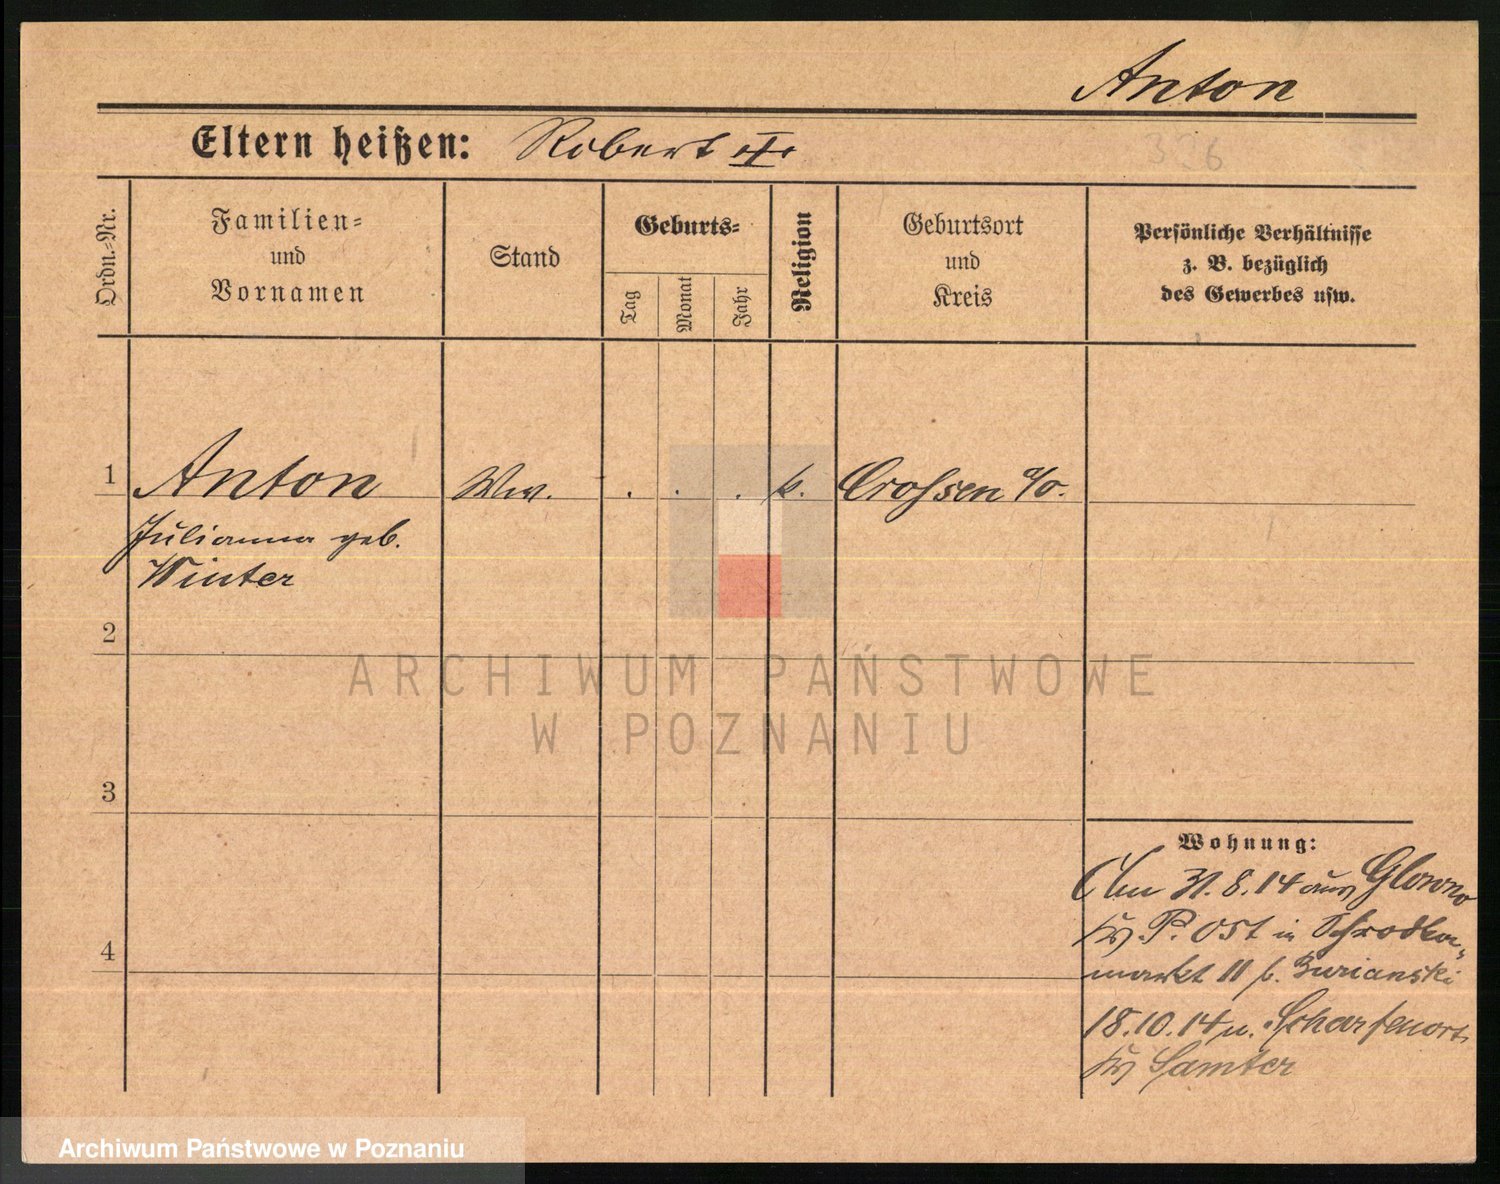 Anton
Eltern heißen: Robert III.
Ordn.-Nr.
Familien-
und
Vornamen
Stand
Geburts-
Tag
Monat
Jahr
Religion
Geburtsort
und
Kreis
Persönliche Verhältnisse
z. B. bezüglich
des Gewerbes usw.
1 Anton Ww. . . . k. Crossen a/o.
Julianna geb.
Winter
2
3
4
Wohnung:
Am 31.8.14 aus Glowno
Kr. P. Ost in Schrodka-
markt 11 b. Burianski
18.10.14 n. Scharfenort
Kr. Samter
ARCHIWUM PAŃSTWOWE
W POZNANIU
Archiwum Państwowe w Poznaniu